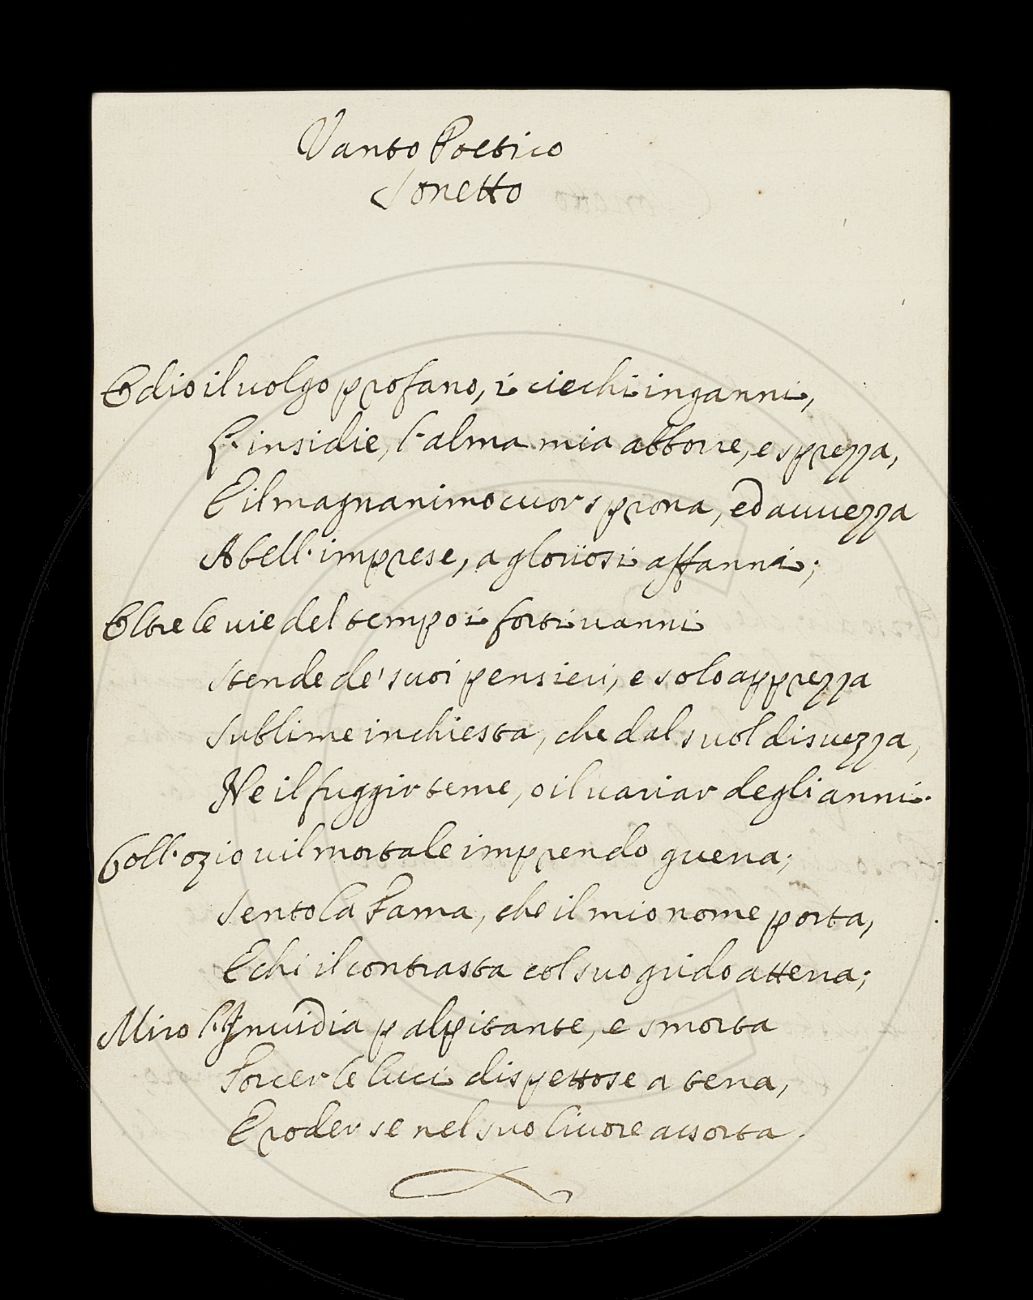 Vanto Poetico
Sonetto
Odio il volgo profano, i ciechi inganni,
L'insidie, l'alma mia abborre, e sprezza,
E il magnanimo cuor sprona, ed avvezza
A bell'imprese, a gloriosi affanni;
Oltre le vie del tempo i forti vanni
Stende de' suoi pensieri, e solo apprezza
Sublime inchiesta, che dal suol disvezza,
Ne il fuggir teme, o il variar degli anni.
Coll'ozio vil mortale imprendo guerra;
Sento la Fama, che il mio nome porta,
E chi il contrasta col suo grido atterra;
Miro l'Invidia palpitante, e smorta
Torcer le luci dispettose a terra,
E roder se nel suo livore assorta.